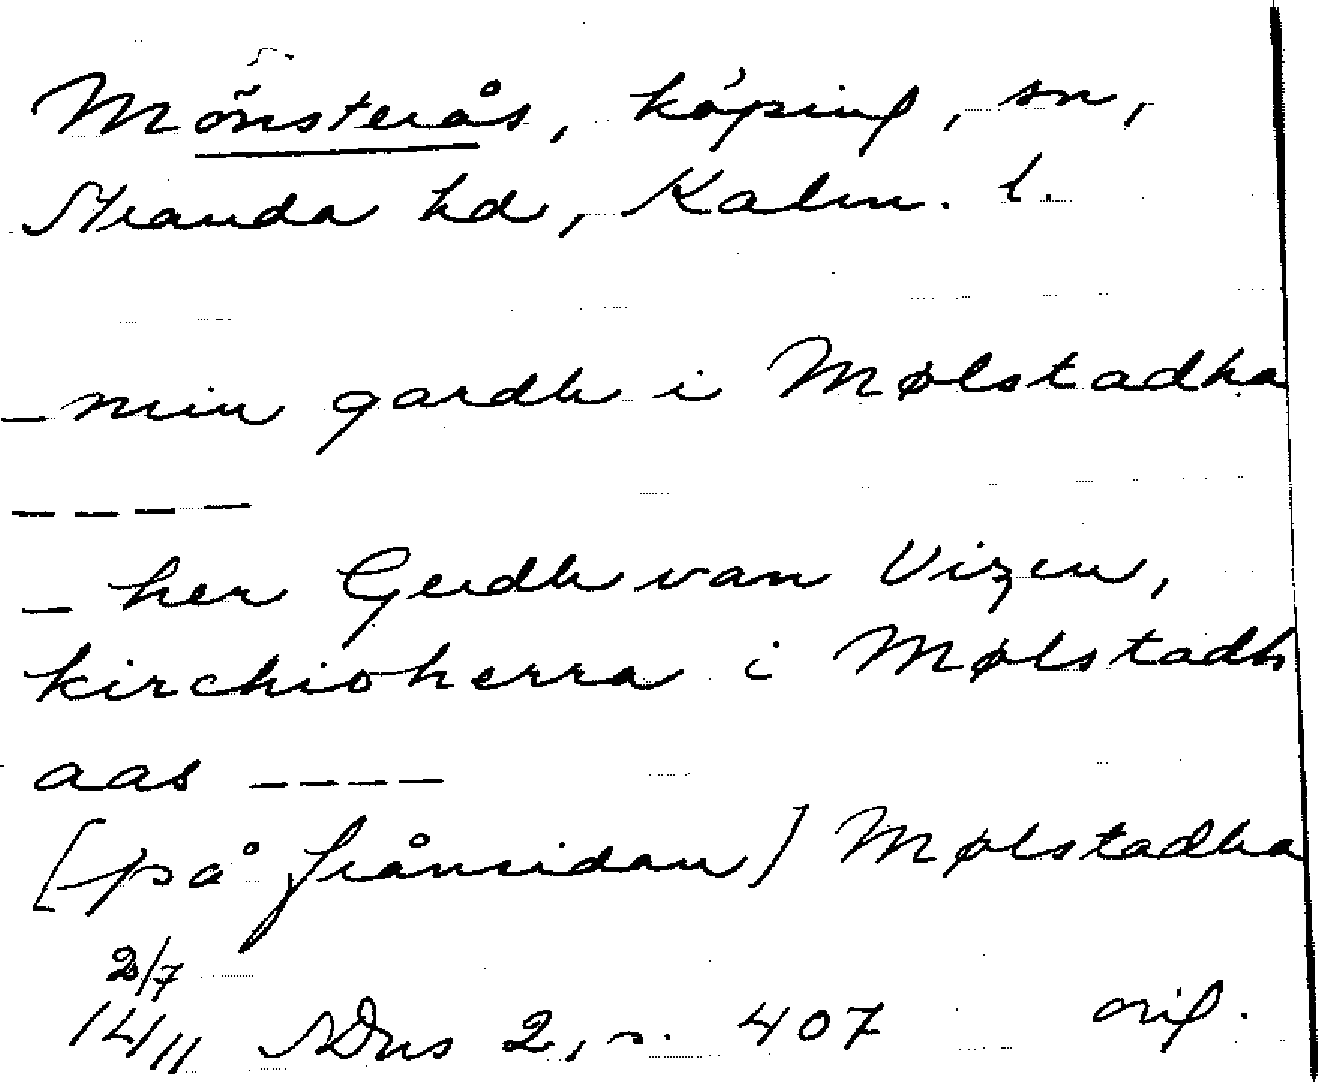 Mönsterås, köping, sn,
Stranda hd, Kalm. l.
– min gardh i Mølstadha
– – – –
– her Gerdh van Vizen,
kirchioherra i Mølstadh
aas – – – –
[på frånsidan] Mølstadha
2/7
14/11 SDns 2, s. 407 orig.